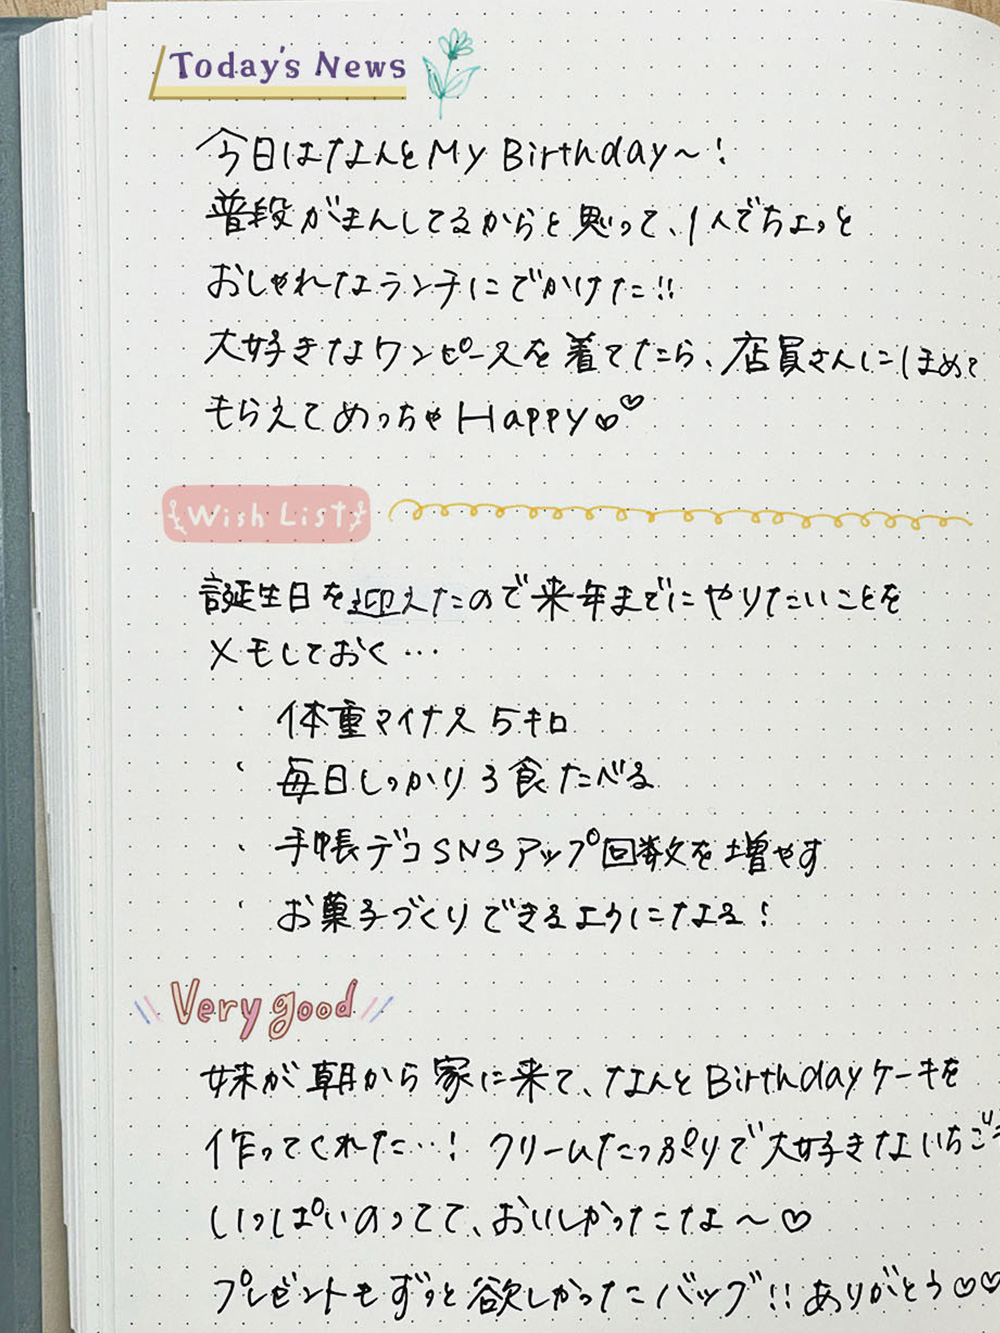 Today's News
今日はなんとMy Birthday〜！
普段がまんしてるからと思って、1人でちょっと
おしゃれなランチにでかけた!!
大好きなワンピースを着てたら、店員さんにほめて
もらえてめっちゃHappy♡♡
Wish List
誕生日を迎えたので来年までにやりたいことを
メモしておく…
・体重マイナス5キロ
・毎日しっかり3食たべる
・手帳デコSNSアップ回数を増やす
・お菓子づくりできるようになる！
Very good
妹が朝から家に来て、なんとBirthdayケーキを
作ってくれた…！クリームたっぷりで大好きないちご
いっぱいのってて、おいしかったなぁ〜♡
プレゼントもずっと欲しかったバッグ!!ありがとう♡♡